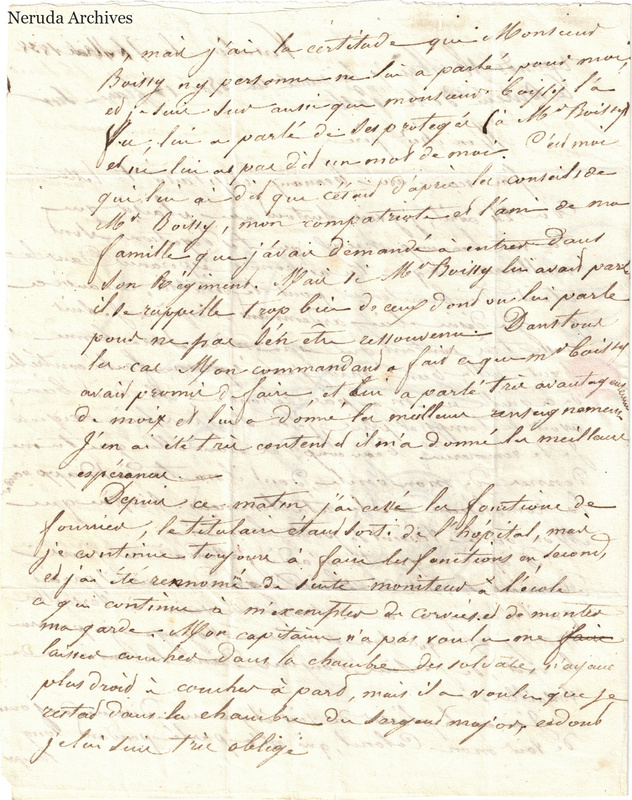 Neruda Archives
, mais j'ai la certitude que Monsieur
Boissy n'y personne ne lui a parlé pour moi,
et je suis sur aussi que monsieur Coissy l'a
vu, lui a parlé de ses protegés (à Mr Boissy)
et ne lui a pas dit un mot de moi. C'est moi
qui lui ai dit que c'était d'après les conseils de
Mr Boissy, mon compatriote et l'ami de ma
famille que j'avais demandé à entrer dans
son Régiment. Mais si Mr Boissy lui avait parlé
il se rappelle trop bien de ceux dont on lui parle
pour ne pas s'en être ressouvenu. Dans tous
les cas Mon commandant a fait ce que mr Coissy
avait promis de faire, et lui a parlé très avantageusement
de moi et lui a donné les meilleurs renseignements
J'en ai été très content et il m'a donné les meilleures
espérances.
Depuis ce matin j'ai cessé les fonctions de
fourrier, le titulaire étant sorti de l'hôpital, mais
je continue toujours à faire les fonctions en second,
et j'ai été renommé de suite moniteur à l'école
ce qui continue à m'exempter de corvées et de monter
ma garde. Mon capitaine n'a pas voulu me faire
laisser coucher dans la chambre des soldats, n'ayant
plus droit à coucher à part, mais il a voulu que je
restas dans la chambre du sargent major, ce dont
je lui suis très obligé